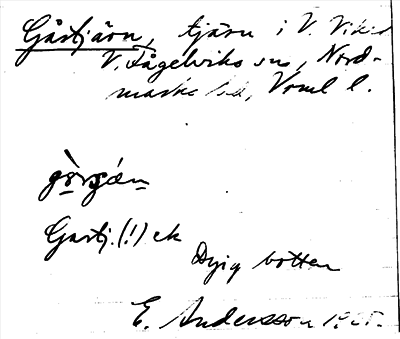 Gåstjärn, tjärn i V. Vik
V. Fågelviks sn, Nord-
marks hd, Vrml l.
Gastj. (!) ek
Dyig botten
E. Andersson